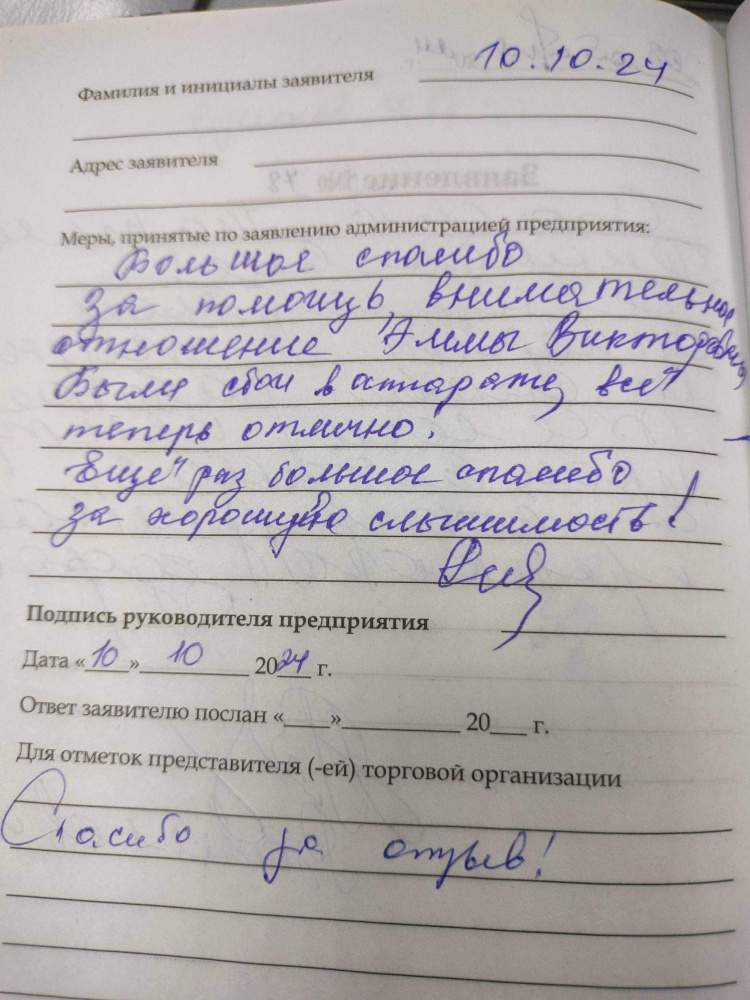 10.10.24
Фамилия и инициалы заявителя
Адрес заявителя
Заявление № 78
Меры, принятые по заявлению администрацией предприятия:
Большое спасибо
за помощь, внимательное
отношение Эммы Викторовны,
Были сбои в аппарате, всё
теперь отлично.
Ещё раз большое спасибо
за хорошую слышимость!
Подпись руководителя предприятия
Дата «10» 10 2024 г.
Ответ заявителю послан «___» 20___ г.
Для отметок представителя (-ей) торговой организации
Спасибо за отзыв!